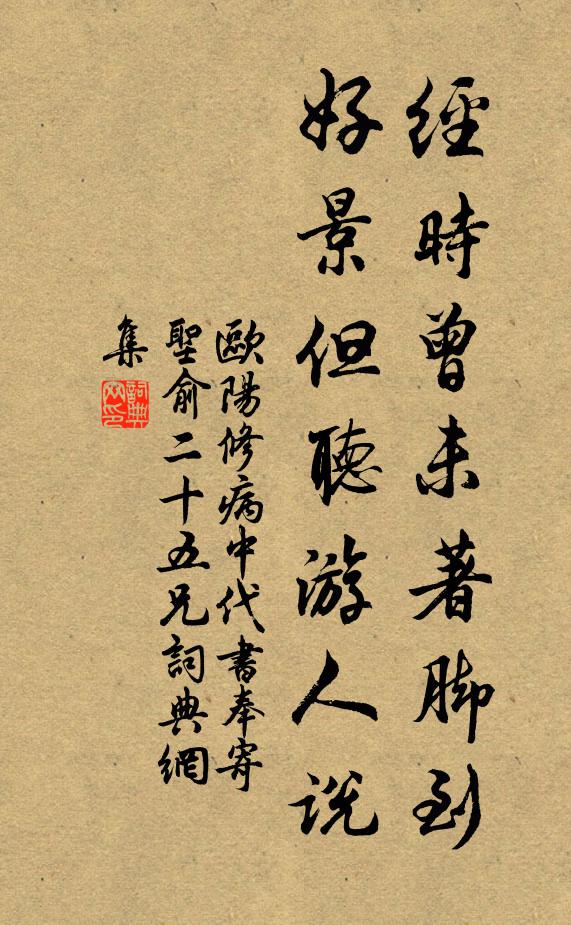 經時曾未著脚到
好景但聽游人說
歐陽修病中代書奉寄
聖俞二十五兄詞典網
集
詞典
网印